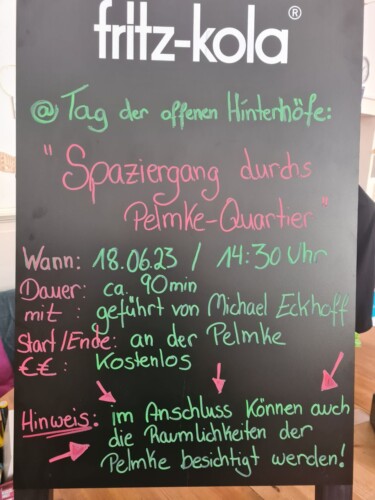 fritz-kola®
@ Tag der offenen Hinterhöfe:
"Spaziergang durchs
Pelmke-Quartier"
Wann: 18.06.23 / 14:30 Uhr
Dauer: ca. 90min
mit : geführt von Michael Eckhoff
Start/Ende: an der Pelmke
€€ : Kostenlos
Hinweis: im Anschluss können auch
die Räumlichkeiten der
Pelmke besichtigt werden!